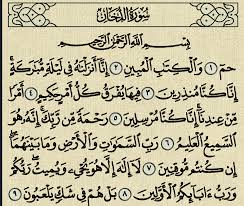 سُورَةُ الدُّخَانِ
بِسْمِ اللَّهِ الرَّحْمَٰنِ الرَّحِيمِ
حمٓ ١ وَالْكِتَابِ الْمُبِينِ ٢ إِنَّا أَنزَلْنَاهُ فِي لَيْلَةٍ مُّبَارَكَةٍ
إِنَّا كُنَّا مُنذِرِينَ ٣ فِيهَا يُفْرَقُ كُلُّ أَمْرٍ حَكِيمٍ ٤ أَمْرًا
مِّنْ عِندِنَا إِنَّا كُنَّا مُرْسِلِينَ ٥ رَحْمَةً مِّن رَّبِّكَ إِنَّهُ هُوَ
السَّمِيعُ الْعَلِيمُ ٦ رَبِّ السَّمَاوَاتِ وَالْأَرْضِ وَمَا بَيْنَهُمَا
إِن كُنتُم مُّوقِنِينَ ٧ لَا إِلَٰهَ إِلَّا هُوَ يُحْيِي وَيُمِيتُ رَبُّكُمْ
وَرَبُّ آبَائِكُمُ الْأَوَّلِينَ ٨ بَلْ هُمْ فِي شَكٍّ يَلْعَبُونَ ٩